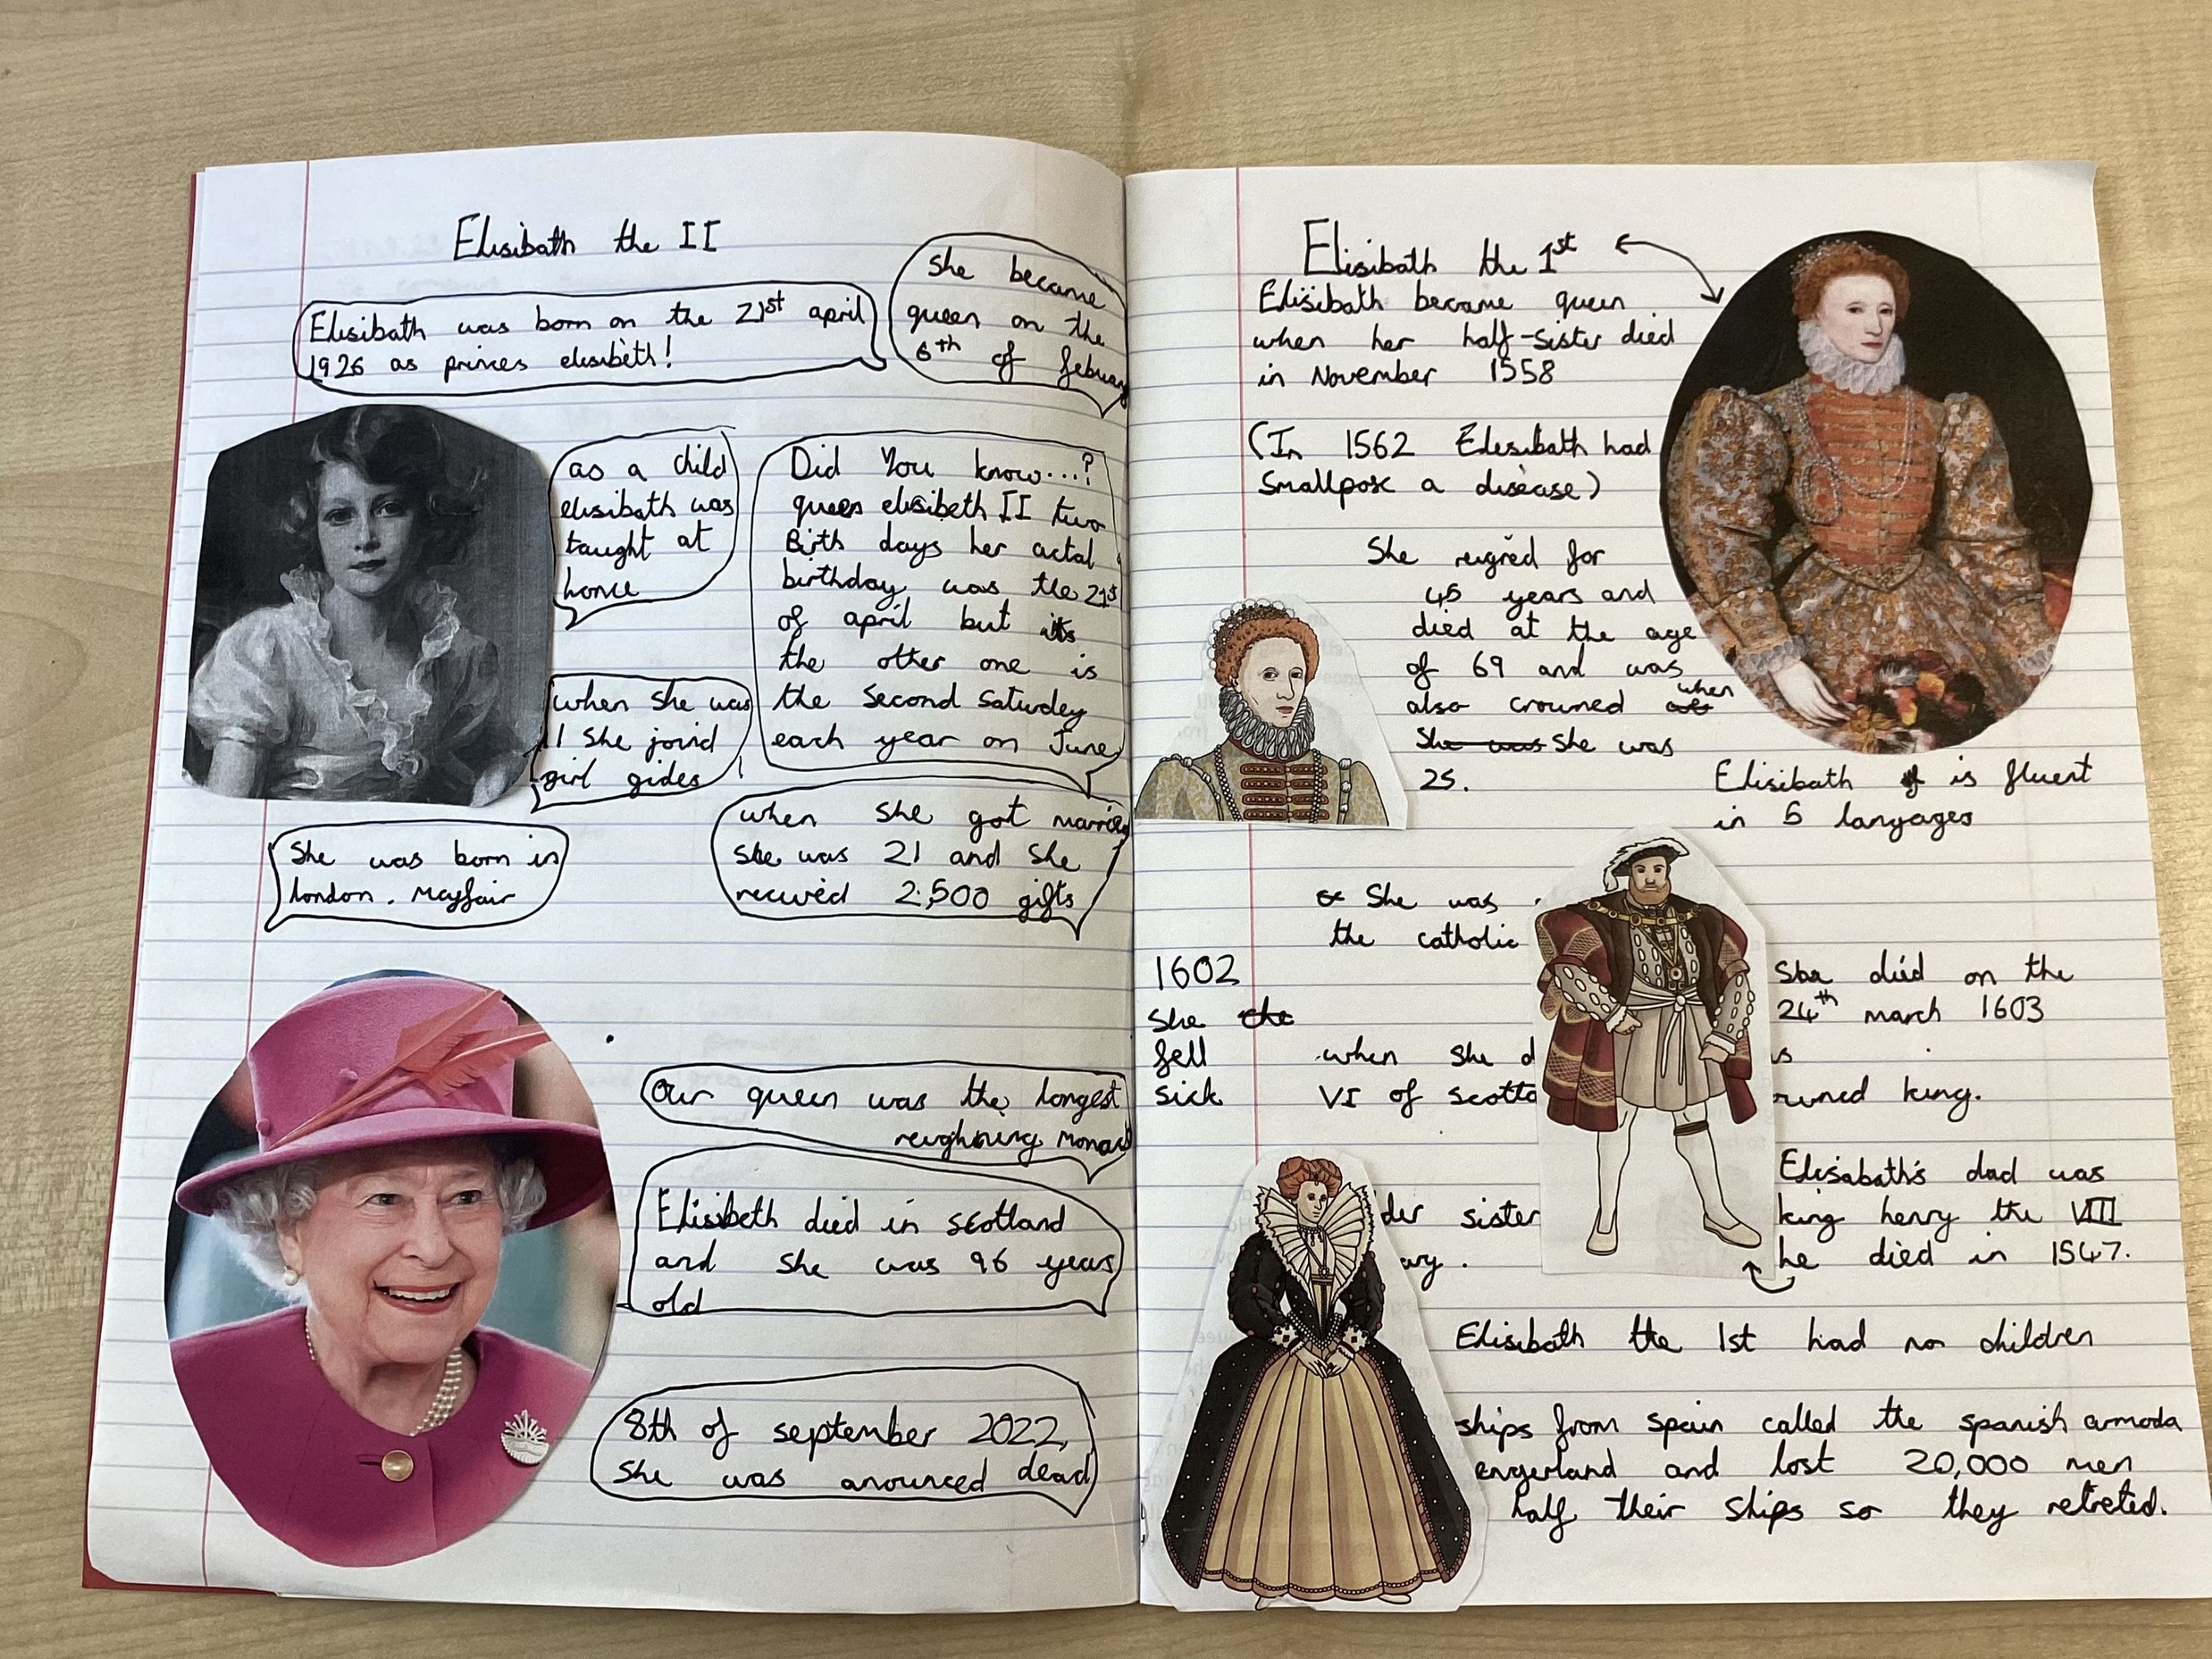 Elisibath the II
Elisibath was born on the 21st april
1926 as princes elisibeth!
She became
queen on the
6th of febuary
as a child
elisibath was
taught at
home
Did You know....?
queen elisibeth II two
Birth days her actal
birthday was the 21st
of april but its
the other one is
the second saturday
each year on June
when she was
11 she joind
girl gides!
She was born in
london. Mayfair
when she got married
she was 21 and she
recuved 2,500 gifts
Our queen was the longest
reughning monarc
Elisibeth died in scotland
and she was 96 years
old
8th of september 2022,
she was anounced dead
Elisibath the 1st
Elisibath became queen
when her half-sister died
in November 1558
(In 1562 Elesibath had
Smallpox a disease)
She reigned for
45 years and
died at the age
of 69 and was
also crowned when
She was She was
25.
Elisibath is fluent
in 5 langages
She was
the catholic
1602
She the
fell
sick
She died on the
24th march 1603
when she d
VI of scotla
owned king.
der sister
ary.
Elisabath's dad was
king henry the VIII
he died in 1547.
Elisibath the 1st had no children
ships from spain called the spanish armada
engerland and lost 20,000 men
half their ships so they retreted.